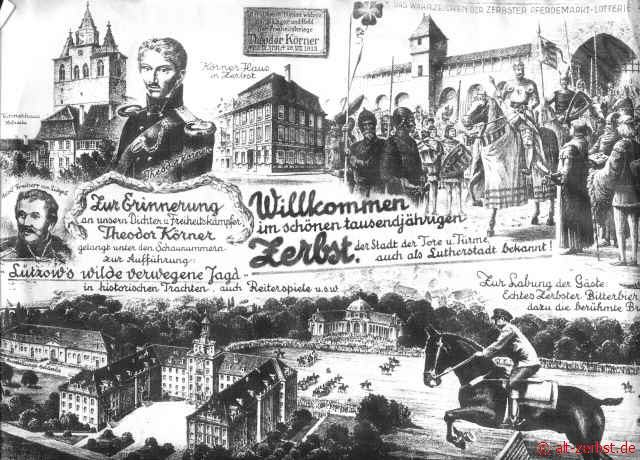 DAS WAHRZEICHEN DER ZERBSTER PFERDEMARKT-LOTTERIE
Theodor Körner
Körner Haus
in Zerbst
Zur Erinnerung
an unsern Dichter u. Freiheitskämpfer
Theodor Körner
gelangt unter den Schaunummern
zur Aufführung:
Lützow's wilde verwegene Jagd
in historischen Trachten, auch Reiterspiele u.s.w.
Willkommen
im schönen tausendjährigen
Zerbst,
der Stadt der Tore u. Türme,
auch als Lutherstadt bekannt!
Zur Labung der Gäste:
Echtes Zerbster Bitterbier
dazu die berühmte Br
© alt-zerbst.de